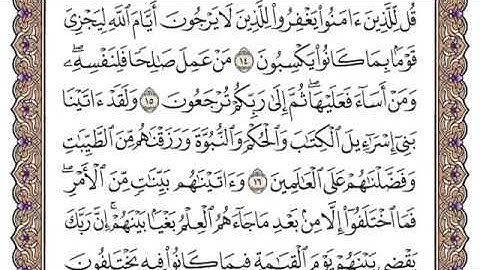 قُل لِّلَّذِينَ ءَامَنُواْ يَغْفِرُواْ لِلَّذِينَ لَا يَرْجُونَ أَيَّامَ ٱللَّهِ لِيَجْزِيَ
قَوْمَۢا بِمَا كَانُواْ يَكْسِبُونَ ١٤ مَنْ عَمِلَ صَٰلِحٗا فَلِنَفْسِهِۦۖ
وَمَنْ أَسَآءَ فَعَلَيْهَاۖ ثُمَّ إِلَىٰ رَبِّكُمْ تُرْجَعُونَ ١٥ وَلَقَدْ ءَاتَيْنَا
بَنِيٓ إِسْرَٰٓءِيلَ ٱلْكِتَٰبَ وَٱلْحُكْمَ وَٱلنُّبُوَّةَ وَرَزَقْنَٰهُم مِّنَ ٱلطَّيِّبَٰتِ
وَفَضَّلْنَٰهُمْ عَلَى ٱلْعَٰلَمِينَ ١٦ وَءَاتَيْنَٰهُم بَيِّنَٰتٖ مِّنَ ٱلْأَمْرِۖ
فَمَا ٱخْتَلَفُوٓاْ إِلَّا مِنۢ بَعْدِ مَا جَآءَهُمُ ٱلْعِلْمُ بَغْيَۢا بَيْنَهُمْۚ إِنَّ رَبَّكَ
يَقْضِي بَيْنَهُمْ يَوْمَ ٱلْقِيَٰمَةِ فِيمَا كَانُواْ فِيهِ يَخْتَلِفُونَ